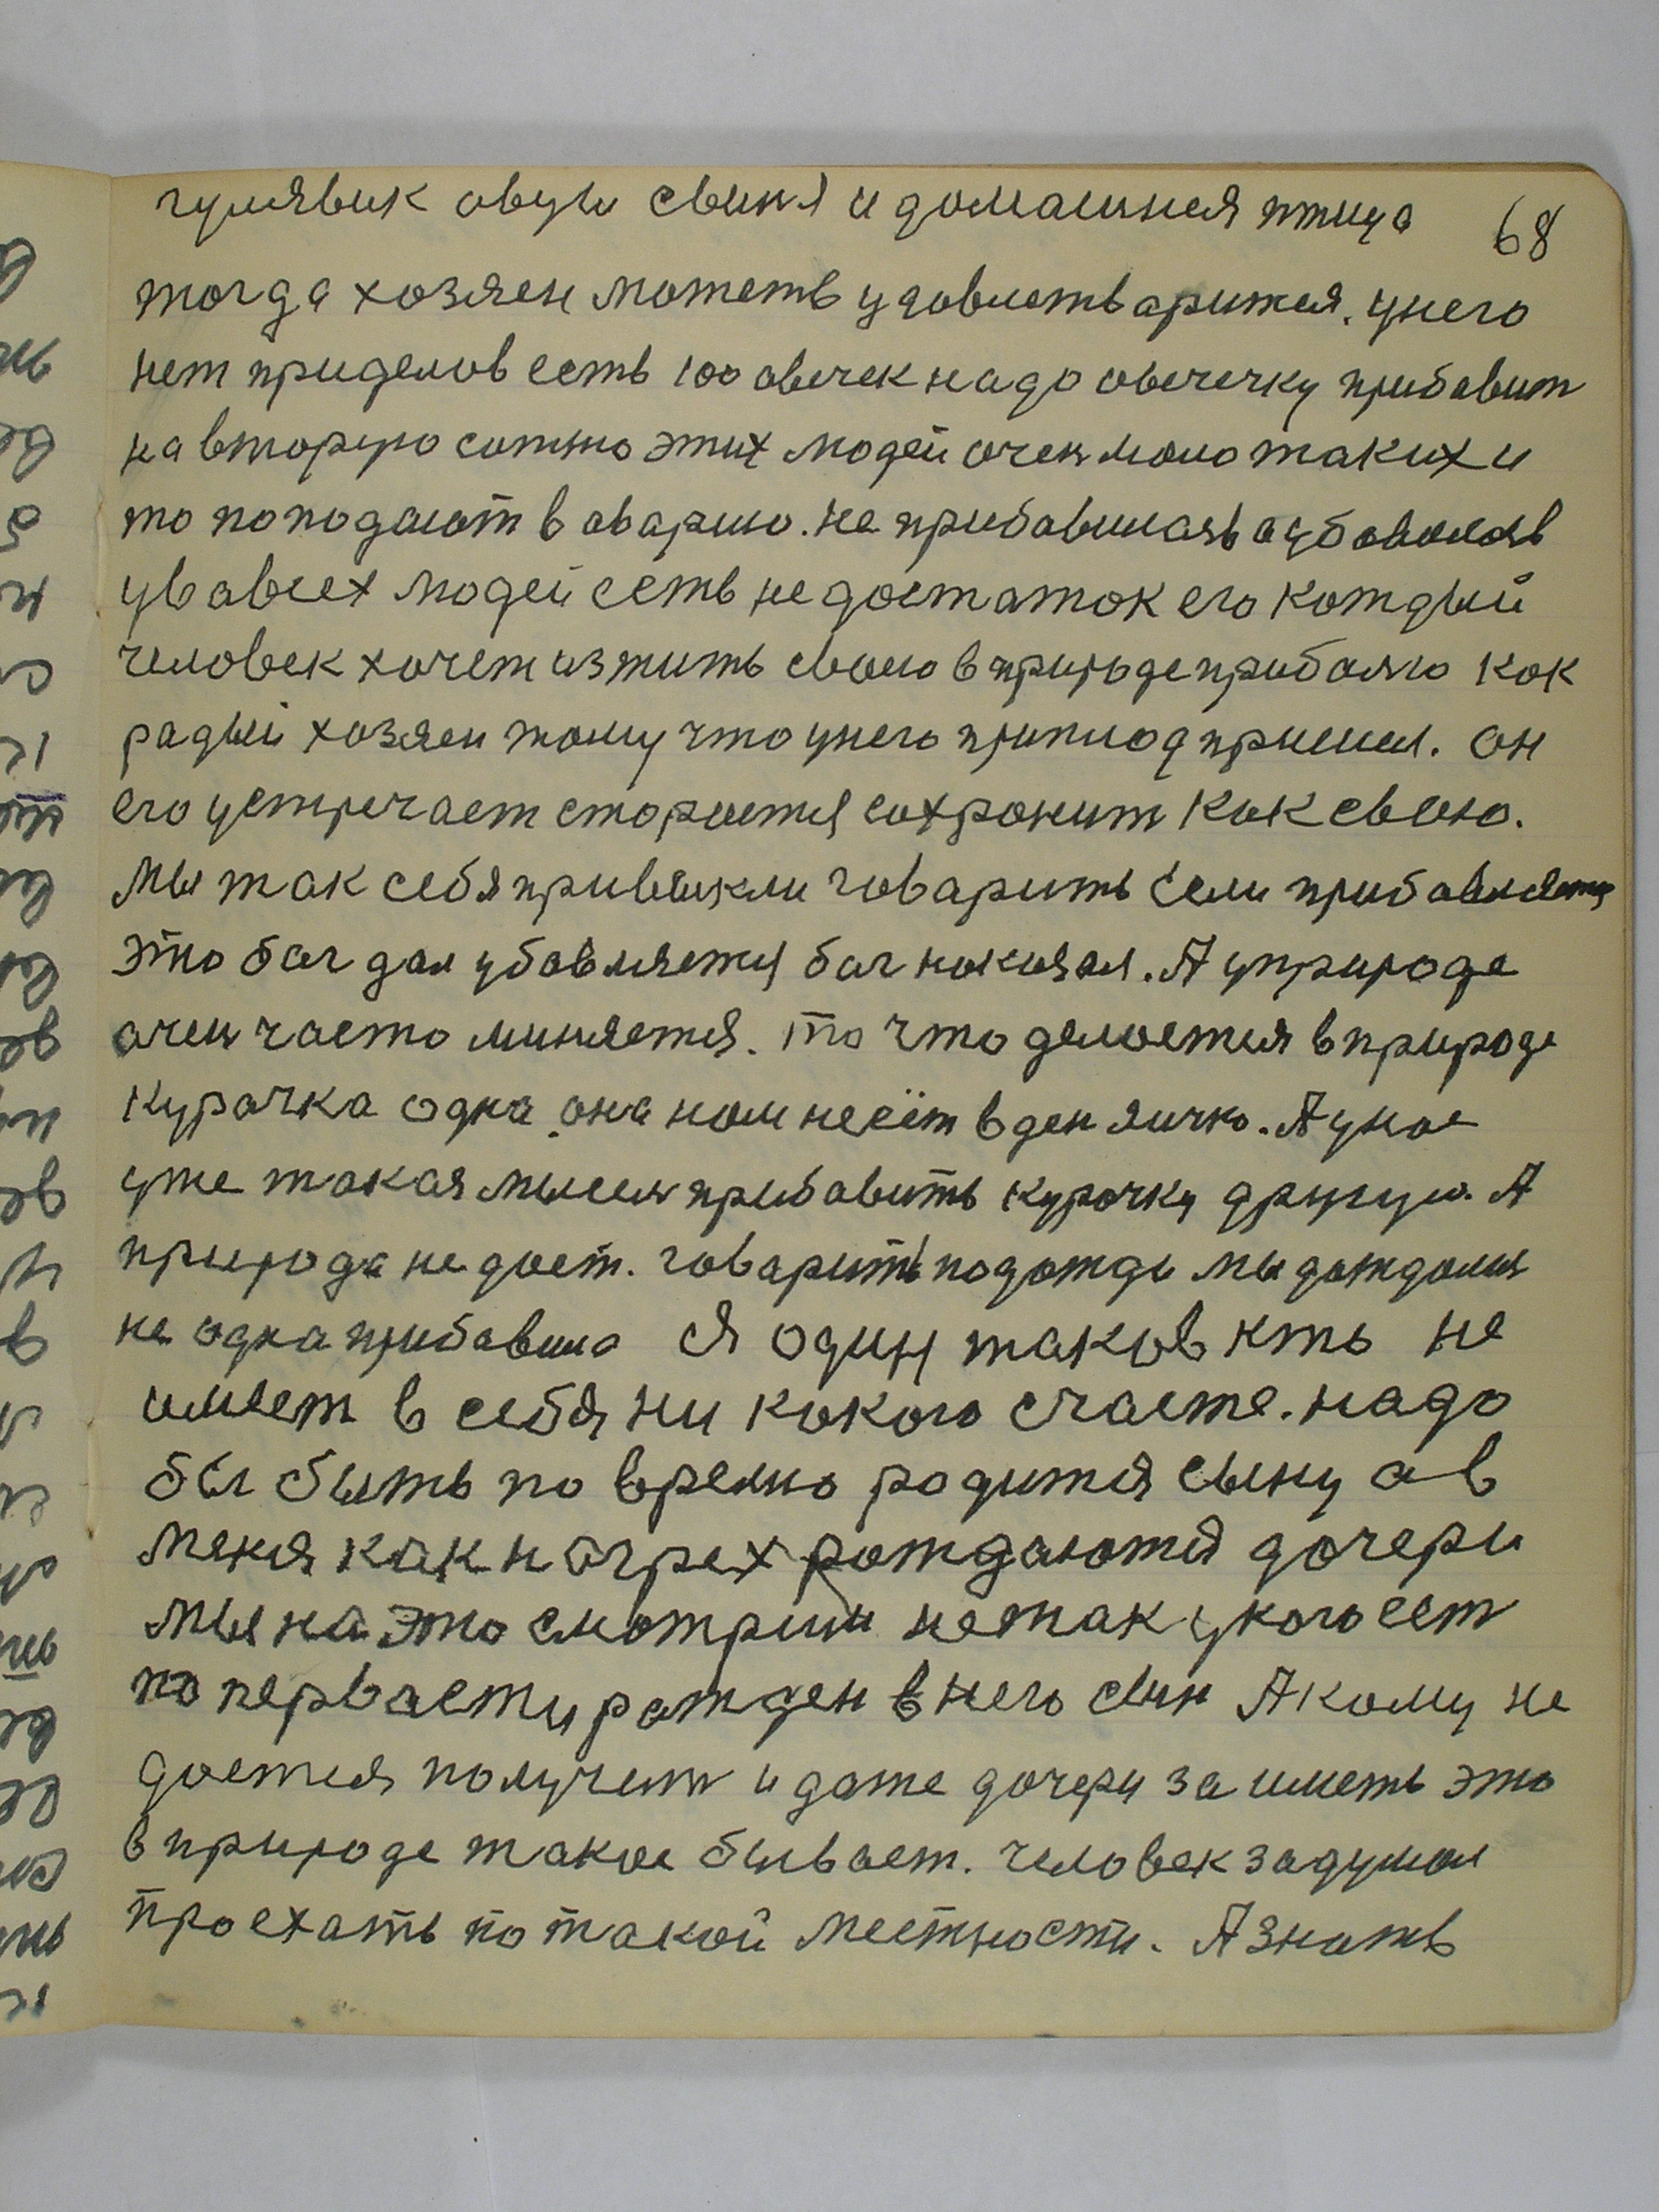 68
гулявик овцы свиня и домашняя птица
тогда хозяен можеть удовлетварится. унего
нет приделов есть 100 овечек надо овечечку прибавит
на вторую сотню этих людей очен мало таких и
то попадают в аварию. не прибавилась а убавилось
ув авсех людей есть недостаток его каждый
человек хочет изжить свого в природе прибаляю как
радый хозяен тому что унего приплод пришел. он
его устречает старается сохронит как свою.
мы так себя привыкли говарить если прибавляется
это бог дал убавляется бог наказал. А уприроде
очен часто миняется. то что делается в природе
курачка одна она нам несёт в ден яичко. А унас
уже такая мысля прибавить курочку другую. А
природа не дает. говарить подожди мы дождалис
не одна прибавила Я один таков кто не
имеет в себя ни какого счастя. надо
бы быть по время родится сыну а в
меня как на грех рождаются дочери
мы на это смотрим не так у кого ест
по первасти рожден в него сын А кому не
дается получит и даже дочери за иметь это
в природе такое бывает. человек задумал
проехать по такой местности. А знать